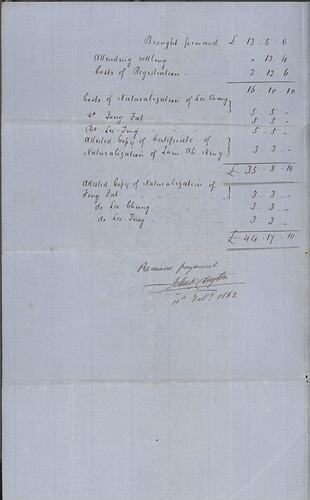 Brought forward £ 13 - 5 - 0
Attending settling - 13 4
Costs of Registration - 2. 12. 6
16 - 10 - 10
Costs of Naturalization of Lee Chung } 5 - 5 -
Do Fong Fat 5 - 5 -
Do Lee Ting 5 - 5 -
Attested Copy of Certificate of
Naturalization of Lam Ah } 3 3 -
£ 35 - 8 - 10
Attested Copy of Naturalization of
Fong Fat } 3 3 -
do Lee Chung 3 3 -
do Lee Ting 3 3 -
£ 44 - 17 - 10
Received payment
Clayton
10th Feby 1862